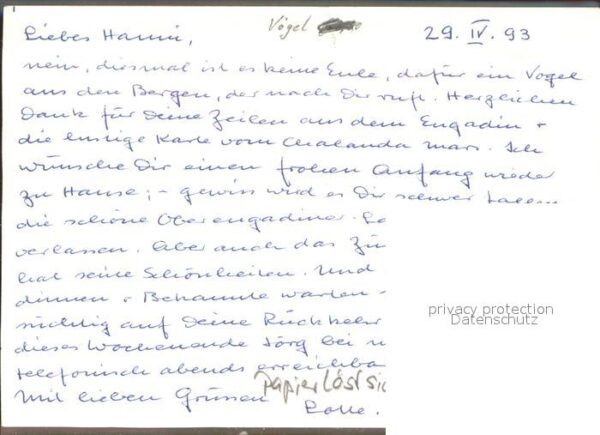 Vögel
29. IV. 93
Liebes Hanni,
nein, diesmal ist es keine Eule, dafür ein Vogel
aus den Bergen, der nach Dir ruft. Herzlichen
Dank für Deine Zeilen aus dem Engadin +
die lustige Karte vom Chalanda mars. Ich
wünsche Dir einen frohen Anfang wieder
zu Hause; - gewiss wird es Dir schwer
die schöne Oberengadiner
verlassen. Aber auch das Zü
hat seine Schönheiten. Und
dinnen + Bekannte warten
süchtig auf Deine Rückkehr
dieses Wochenende Jörg bei
telefonisch abends erreichba
Papier löst si
Mit lieben Grüssen Lotte.
privacy protection
Datenschutz